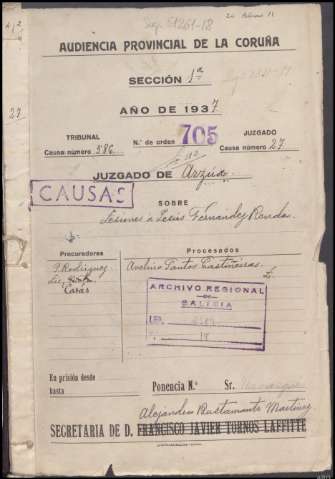 AUDIENCIA PROVINCIAL DE LA CORUÑA
SECCIÓN 1ª
AÑO DE 1937
TRIBUNAL
Causa número 586
N.º de orden 705
JUZGADO
Causa número 27
JUZGADO DE Arzúa
CAUSAS
SOBRE
Lesiones a Jesús Fernández
Procuradores
Procesados
P. Rodríguez
Avelino Santos Castiñeiras
Lic.
Casás
ARCHIVO REGIONAL
DE
GALICIA
LEG.
En prisión desde
hasta
Ponencia N.º Sr.
Alejandro Bustamante Martínez
SECRETARIA DE D. FRANCISCO JAVIER TORNOS LAFFITTE
27